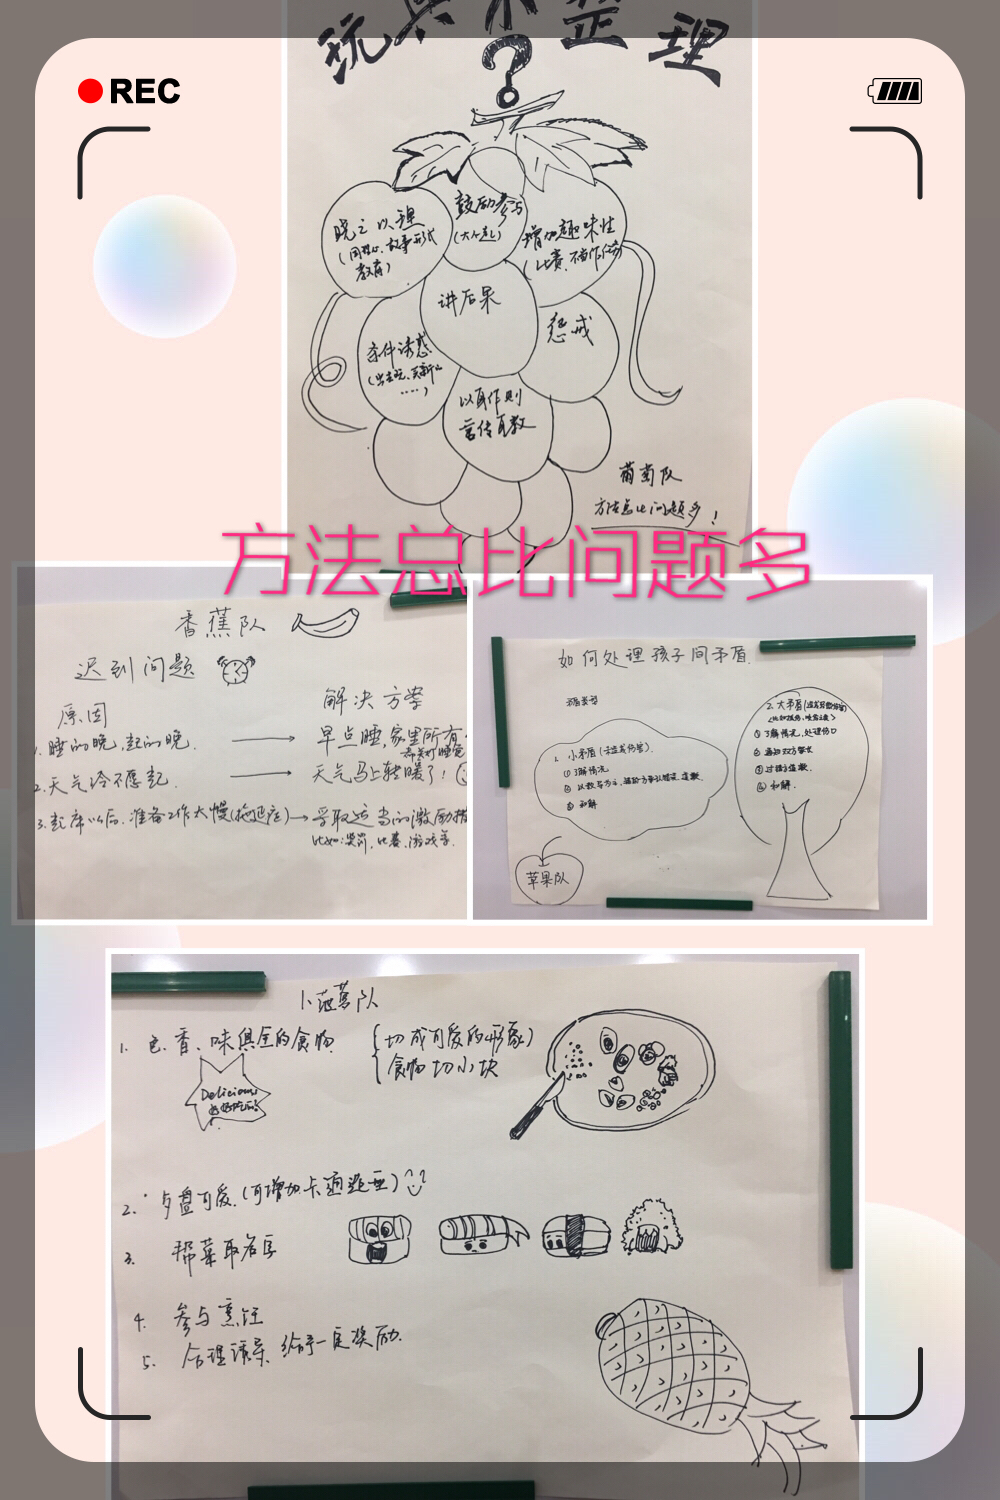 REC
玩具不整理
?
晓之以理
(同理心、故事形式
教育)
鼓励参与
(大人起)
增加趣味性
(比赛、不当作任务)
讲后果
惩戒
条件诱惑
(出去玩、买新的
……)
以身作则
言传身教
葡萄队
方法总比问题多!
方法总比问题多
香蕉队
迟到问题
原因
解决方案
1.睡的晚,起的晚.
早点睡,家里所有
都关灯睡觉
2.天气冷不愿起.
天气马上转暖了!
3.起床以后,准备工作太慢(拖延症)
采取适当的激励措
比如:奖罚,比赛,游戏等.
如何处理孩子间矛盾.
1. 小矛盾(未造成伤害).
①了解情况
③和解
2.大矛盾(造成身体伤害)
①了解情况,处理伤口
②通知双方家长
③过错方道歉.
④和解.
苹果队
1.菠萝队
1. 色、香、味俱全的食物.
切成可爱的形象
食物切小块
Delicious
2. 餐盘可爱.(可增加卡通造型)
3. 帮菜取名字
4. 参与烹饪
5. 合理诱导 给予一定奖励.